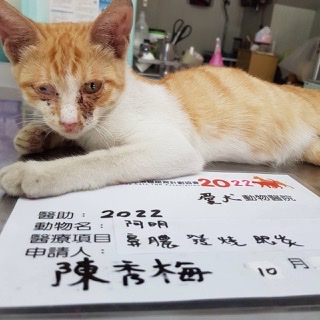 2022
愛犬動物醫院
醫助：2022
動物名：阿明
醫療項目 鼻膿 發燒 肺炎
申請人：
陳秀梅 10月